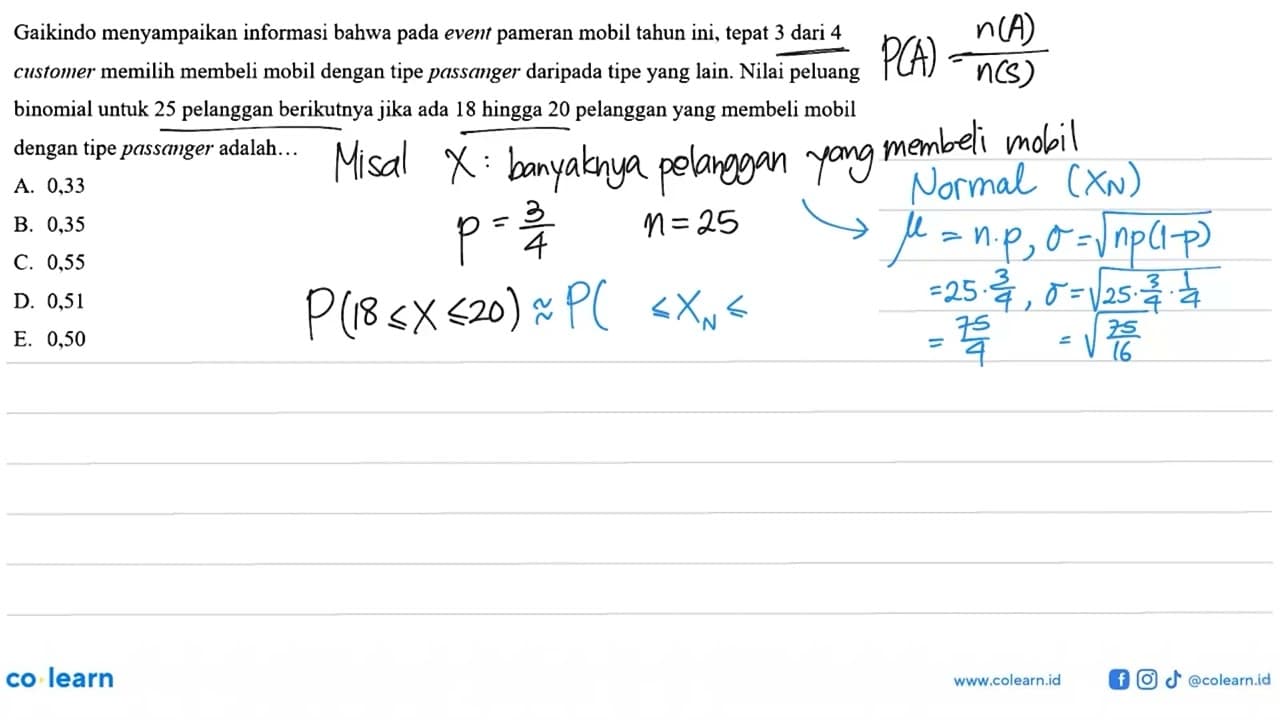 Gaikindo menyampaikan informasi bahwa pada event pameran mobil tahun ini, tepat 3 dari 4
customer memilih membeli mobil dengan tipe passanger daripada tipe yang lain. Nilai peluang
binomial untuk 25 pelanggan berikutnya jika ada 18 hingga 20 pelanggan yang membeli mobil
dengan tipe passanger adalah...
P(A) = n(A)/n(S)
Misal X : banyaknya pelanggan yang membeli mobil
A. 0,33
B. 0,35
C. 0,55
D. 0,51
E. 0,50
p = 3/4 n = 25
P(18 ≤ X ≤ 20) ≈ P( ≤ X_N ≤
Normal (X_N)
μ = n.p, σ = √np(1-p)
= 25 · 3/4, σ = √25 · 3/4 · 1/4
= 75/4 = √75/16
co learn
www.colearn.id @colearn.id